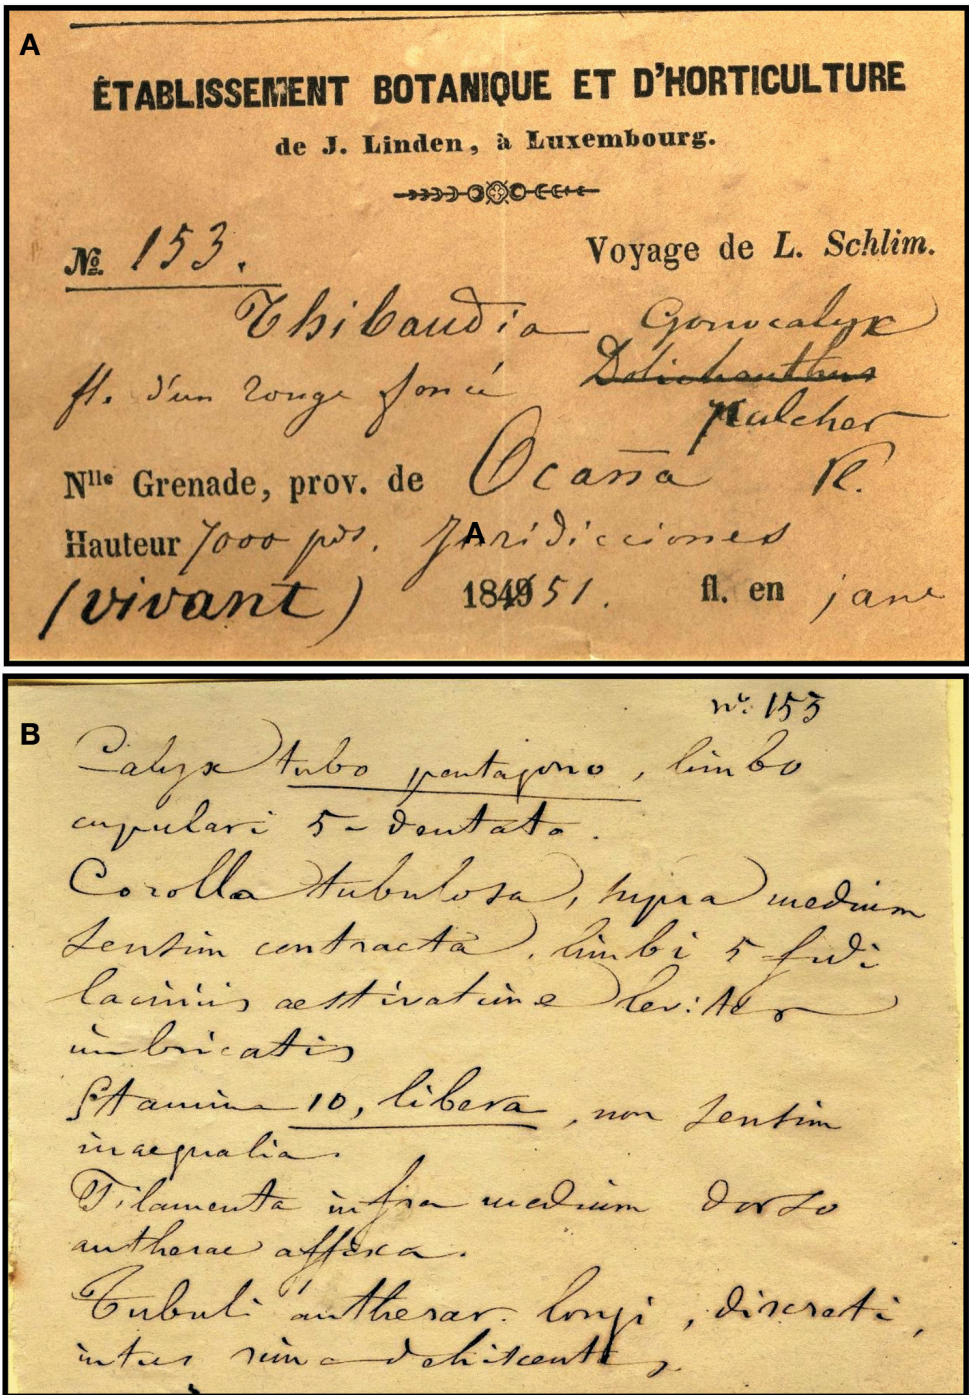 A
ÉTABLISSEMENT BOTANIQUE ET D'HORTICULTURE
de J. Linden, à Luxembourg.
№. 153.
Voyage de L. Schlim.
Thibaudia Gonocalyx
fl. d'un rouge foncé Dolichanthus
pulcher
Nlle Grenade, prov. de Ocaña
Hauteur 7000 pds. Juridicciones
A
(vivant) 1849 51. fl. en janv
B
n°. 153
Calyx tubo pentagono, limbo
cupulari 5-dentato.
Corolla tubulosa, supra medium
sensim contracta, limbi 5 fidi
laciniis aestivatione leviter
imbricatis
Stamina 10, libera, non sensim
inaequalia.
Filamenta infra medium dorso
antherae affixa.
Tubuli antherar. longi, discreti,
intus rima dehiscentes.